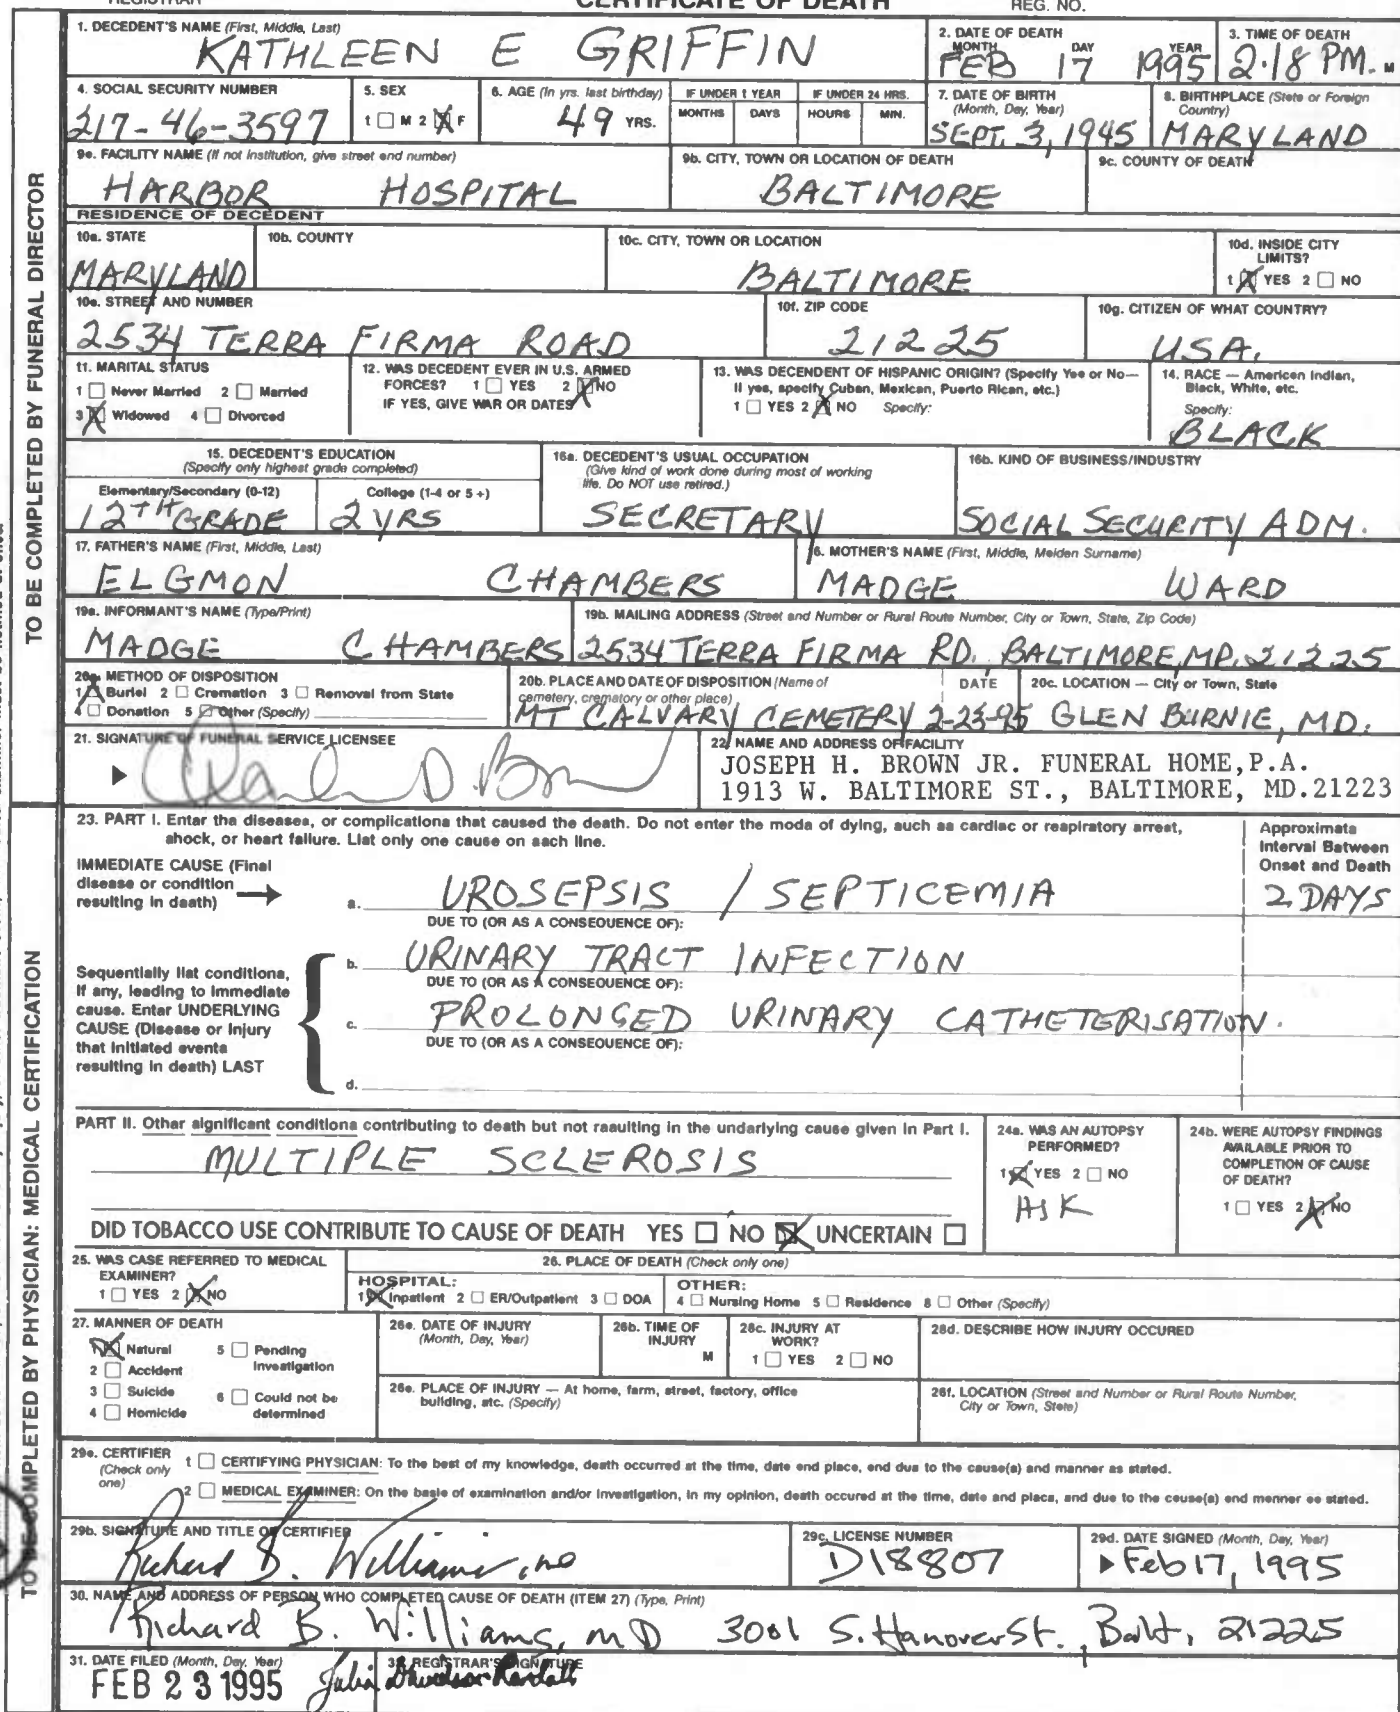 REGISTRAR CERTIFICATE OF DEATH REG. NO.
TO BE COMPLETED BY FUNERAL DIRECTOR
1. DECEDENT'S NAME (First, Middle, Last)
KATHLEEN E GRIFFIN
2. DATE OF DEATH
MONTH DAY YEAR
FEB 17 1995
3. TIME OF DEATH
2.18 PM. M
4. SOCIAL SECURITY NUMBER
217-46-3597
5. SEX
1 ☐ M 2 ☒ F
6. AGE (In yrs. last birthday)
49 YRS.
IF UNDER 1 YEAR
MONTHS DAYS
IF UNDER 24 HRS.
HOURS MIN.
7. DATE OF BIRTH
(Month, Day, Year)
SEPT. 3, 1945
8. BIRTHPLACE (State or Foreign
Country)
MARYLAND
9a. FACILITY NAME (If not institution, give street and number)
HARBOR HOSPITAL
9b. CITY, TOWN OR LOCATION OF DEATH
BALTIMORE
9c. COUNTY OF DEATH
RESIDENCE OF DECEDENT
10a. STATE
MARYLAND
10b. COUNTY
10c. CITY, TOWN OR LOCATION
BALTIMORE
10d. INSIDE CITY
LIMITS?
1 ☒ YES 2 ☐ NO
10e. STREET AND NUMBER
2534 TERRA FIRMA ROAD
10f. ZIP CODE
21225
10g. CITIZEN OF WHAT COUNTRY?
USA.
11. MARITAL STATUS
1 ☐ Never Married 2 ☐ Married
3 ☒ Widowed 4 ☐ Divorced
12. WAS DECEDENT EVER IN U.S. ARMED
FORCES? 1 ☐ YES 2 ☒ NO
IF YES, GIVE WAR OR DATES
13. WAS DECENDENT OF HISPANIC ORIGIN? (Specify Yes or No—
If yes, specify Cuban, Mexican, Puerto Rican, etc.)
1 ☐ YES 2 ☒ NO Specify:
14. RACE — American Indian,
Black, White, etc.
Specify:
BLACK
15. DECEDENT'S EDUCATION
(Specify only highest grade completed)
Elementary/Secondary (0-12) College (1-4 or 5+)
12TH GRADE 2 YRS
16a. DECEDENT'S USUAL OCCUPATION
(Give kind of work done during most of working
life. Do NOT use retired.)
SECRETARY
16b. KIND OF BUSINESS/INDUSTRY
SOCIAL SECURITY ADM.
17. FATHER'S NAME (First, Middle, Last)
ELGMON CHAMBERS
18. MOTHER'S NAME (First, Middle, Maiden Surname)
MADGE WARD
19a. INFORMANT'S NAME (Type/Print)
MADGE CHAMBERS
19b. MAILING ADDRESS (Street and Number or Rural Route Number, City or Town, State, Zip Code)
2534 TERRA FIRMA RD. BALTIMORE, MD. 21225
20a. METHOD OF DISPOSITION
1 ☒ Burial 2 ☐ Cremation 3 ☐ Removal from State
4 ☐ Donation 5 ☐ Other (Specify)
20b. PLACE AND DATE OF DISPOSITION (Name of
cemetery, crematory or other place) DATE
MT CALVARY CEMETERY 2-23-95
20c. LOCATION — City or Town, State
GLEN BURNIE, MD.
21. SIGNATURE OF FUNERAL SERVICE LICENSEE
22. NAME AND ADDRESS OF FACILITY
JOSEPH H. BROWN JR. FUNERAL HOME, P.A.
1913 W. BALTIMORE ST., BALTIMORE, MD.21223
TO BE COMPLETED BY PHYSICIAN: MEDICAL CERTIFICATION
23. PART I. Enter the diseases, or complications that caused the death. Do not enter the mode of dying, such as cardiac or respiratory arrest,
shock, or heart failure. List only one cause on each line.
Approximate
Interval Between
Onset and Death
IMMEDIATE CAUSE (Final
disease or condition
resulting in death)
a. UROSEPSIS / SEPTICEMIA 2 DAYS
DUE TO (OR AS A CONSEQUENCE OF):
Sequentially list conditions,
if any, leading to immediate
cause. Enter UNDERLYING
CAUSE (Disease or injury
that initiated events
resulting in death) LAST
b. URINARY TRACT INFECTION
DUE TO (OR AS A CONSEQUENCE OF):
c. PROLONGED URINARY CATHETERISATION.
DUE TO (OR AS A CONSEQUENCE OF):
d.
PART II. Other significant conditions contributing to death but not resulting in the underlying cause given in Part I.
MULTIPLE SCLEROSIS
DID TOBACCO USE CONTRIBUTE TO CAUSE OF DEATH YES ☐ NO ☒ UNCERTAIN ☐
24a. WAS AN AUTOPSY
PERFORMED?
1 ☒ YES 2 ☐ NO
24b. WERE AUTOPSY FINDINGS
AVAILABLE PRIOR TO
COMPLETION OF CAUSE
OF DEATH?
1 ☐ YES 2 ☒ NO
25. WAS CASE REFERRED TO MEDICAL
EXAMINER?
1 ☐ YES 2 ☒ NO
26. PLACE OF DEATH (Check only one)
HOSPITAL:
1 ☒ Inpatient 2 ☐ ER/Outpatient 3 ☐ DOA
OTHER:
4 ☐ Nursing Home 5 ☐ Residence 8 ☐ Other (Specify)
27. MANNER OF DEATH
☒ Natural 5 ☐ Pending
Investigation
2 ☐ Accident
3 ☐ Suicide 6 ☐ Could not be
determined
4 ☐ Homicide
28a. DATE OF INJURY
(Month, Day, Year)
28b. TIME OF
INJURY
M
28c. INJURY AT
WORK?
1 ☐ YES 2 ☐ NO
28d. DESCRIBE HOW INJURY OCCURED
28e. PLACE OF INJURY — At home, farm, street, factory, office
building, etc. (Specify)
28f. LOCATION (Street and Number or Rural Route Number,
City or Town, State)
29a. CERTIFIER
(Check only
one)
1 ☐ CERTIFYING PHYSICIAN: To the best of my knowledge, death occurred at the time, date and place, and due to the cause(s) and manner as stated.
2 ☐ MEDICAL EXAMINER: On the basis of examination and/or investigation, in my opinion, death occured at the time, date and place, and due to the cause(s) and manner as stated.
29b. SIGNATURE AND TITLE OF CERTIFIER
Richard B. Williams, MD
29c. LICENSE NUMBER
D18807
29d. DATE SIGNED (Month, Day, Year)
Feb 17, 1995
30. NAME AND ADDRESS OF PERSON WHO COMPLETED CAUSE OF DEATH (ITEM 27) (Type, Print)
Richard B. Williams, MD 3001 S. Hanover St., Balt, 21225
31. DATE FILED (Month, Day, Year)
FEB 23 1995
32. REGISTRAR'S SIGNATURE
Julia Davidson-Randall